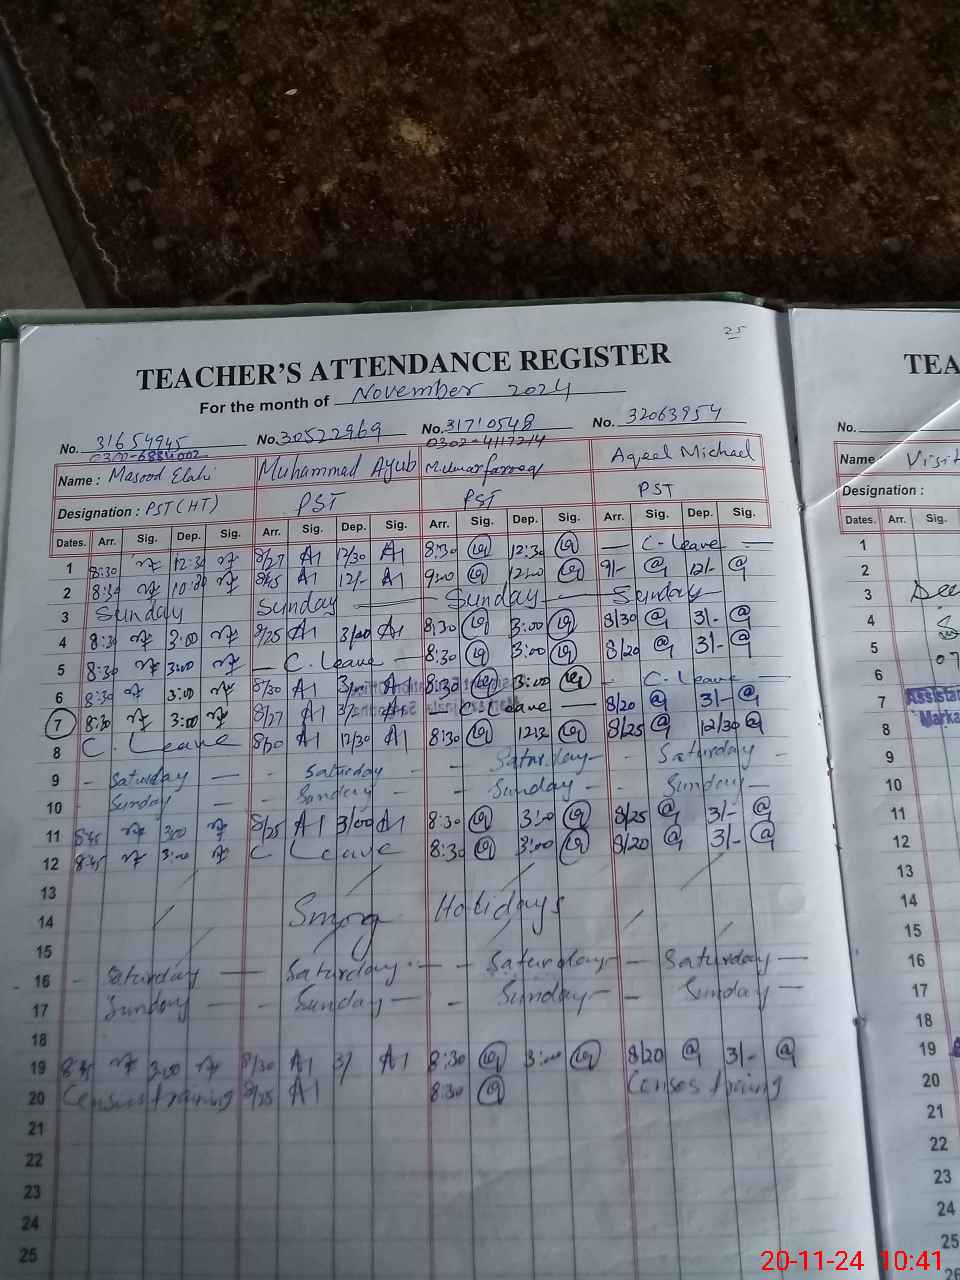 25
TEACHER'S ATTENDANCE REGISTER
TEA
For the month of November 2024
No. 31654945 No. 30522969 No. 31710548 No. 32063954 No.
0300-6884002 0302-4117214
Name : Masood Elahi Muhammad Ayub M. Umar farooq Aqeel Michael Name : Visit
Designation : PST(HT) PST PST PST Designation :
Dates. Arr. Sig. Dep. Sig. Arr. Sig. Dep. Sig. Arr. Sig. Dep. Sig. Arr. Sig. Dep. Sig. Dates. Arr. Sig.
1 8:30 12:30 8/27 A1 12/30 A1 8:30 12:30 — C. Leave — 1
2 8:30 8/25 A1 12/- A1 9:00 12:00 9/- 12/- 2
3 Sunday Sunday — Sunday — Sunday 3
4 8:30 3:00 8/25 A1 3/00 A1 8:30 3:00 8/30 3/- 4
5 8:30 3:00 — C. Leave — 8:30 3:00 8/20 3/- 5 07
6 8:30 3:00 8/30 A1 3/00 A1 8:30 3:00 - C. Leave — 6
7 8:30 3:00 8/27 A1 3/ A1 — C. Leave — 8/20 3/- 7 Assistan
8 C. Leave 8/20 A1 12/30 A1 8:30 8/25 12/30 8 Marka
9 - Saturday — - Saturday - - Saturday - - Saturday - 9
10 Sunday — - Sunday — - Sunday - - Sunday — 10
11 8:45 3:00 8/25 A1 3/00 A1 8:30 3:00 8/25 3/- 11
12 8:45 3:00 C Leave 8:30 3:00 8/20 3/- 12
13 13
14 Smog Holidays 14
15 15
16 - Saturday — Saturday - - Saturday - - Saturday — 16
17 Sunday — - Sunday — - Sunday - - Sunday — 17
18 18
19 8:45 3:00 8/30 A1 3/ A1 8:30 3:00 8/20 3/- 19
20 Census training 8/25 A1 8:30 Censes training 20
21 21
22 22
23 23
24 24
25 25
26
20-11-24 10:41